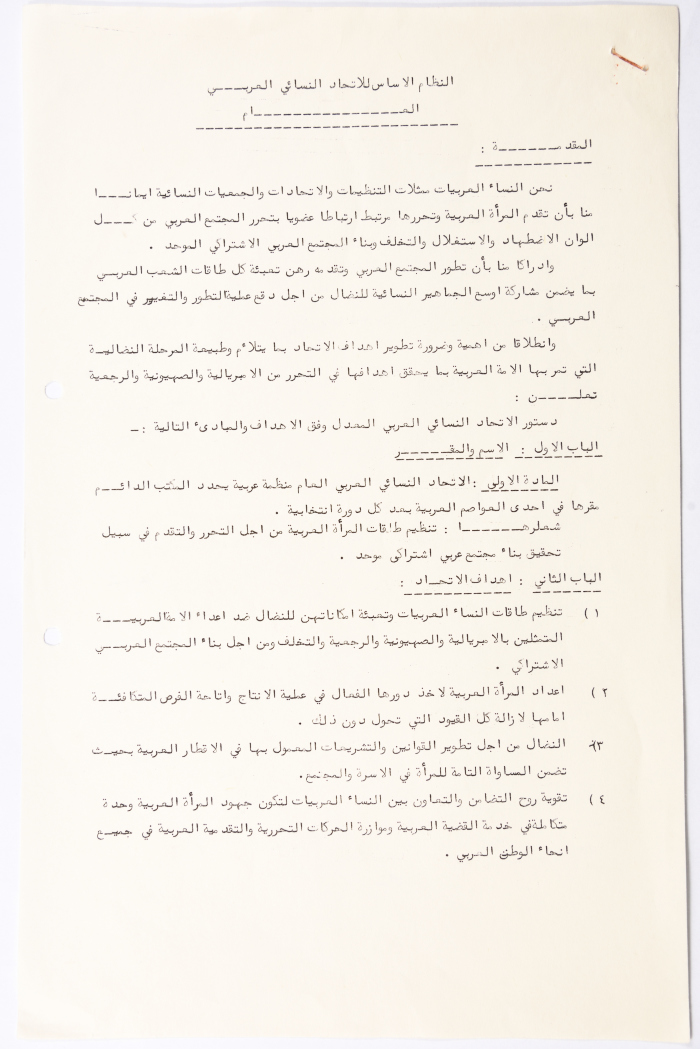 النظام الاساس للاتحاد النسائي العربـــي
العـــــــــــــــام
المقدمـــــــة :
نحن النساء العربيات ممثلات التنظيمات والاتحادات والجمعيات النسائية ايمانـــا
منا بأن تقدم المرأة العربية وتحررها مرتبط ارتباطا عضويا بتحرر المجتمع العربي من كـــل
الوان الاضطهاد والاستغلال والتخلف وبناء المجتمع العربي الاشتراكي الموحد .
وادراكا منا بأن تطور المجتمع العربي وتقدمه رهن تعبئة كل طاقات الشعب العربـــي
بما يضمن مشاركة اوسع الجماهير النسائية للنضال من اجل دفع عملية التطور والتغيير في المجتمع
العربـــي .
وانطلاقا من اهمية وضرورة تطوير اهداف الاتحاد بما يتلائم وطبيعة المرحلة النضاليـة
التي تمر بها الامة العربية بما يحقق اهدافها في التحرر من الامبريالية والصهيونية والرجعية
تعلـــــن :
دستور الاتحاد النسائي العربي المعدل وفق الاهداف والمبادىء التالية :ـ
الباب الاول : الاسم والمقـــــر
المادة الاولى : الاتحاد النسائي العربي العام منظمة عربية يحدد المكتب الدائـــم
مقرها في احدى العواصم العربية بعد كل دورة انتخابية .
شعارهـــــــا : تنظيم طاقات المرأة العربية من اجل التحرر والتقدم في سبيل
تحقيق بناء مجتمع عربي اشتراكي موحد .
الباب الثاني : اهداف الاتحـــاد :
١ ) تنظيم طاقات النساء العربيات وتعبئة امكاناتهن للنضال ضد اعداء الامة العربيـــة
المتمثلين بالامبريالية والصهيونية والرجعية والتخلف ومن اجل بناء المجتمع العربـــي
الاشتراكي .
٢ ) اعداد المرأة العربية لاخذ دورها الفعال في عملية الانتاج واتاحة الفرص المتكافئـــة
امامها لازالة كل القيود التي تحول دون ذلك .
٣) النضال من اجل تطوير القوانين والتشريعات المعمول بها في الاقطار العربية بحيـث
تضمن المساواة التامة للمرأة في الاسرة والمجتمع.
٤ ) تقوية روح التضامن والتعاون بين النساء العربيات لتكون جهود المرأة العربية وحدة
متكاملة في خدمة القضية العربية وموازرة الحركات التحررية والتقدمية العربية في جميـع
انحاء الوطن العربي .